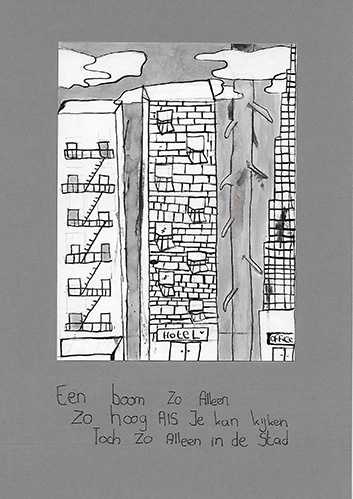 HOTEL
OFFICE
Een boom Zo Alleen
Zo hoog Als Je kan kijken
Toch Zo Alleen in de Stad